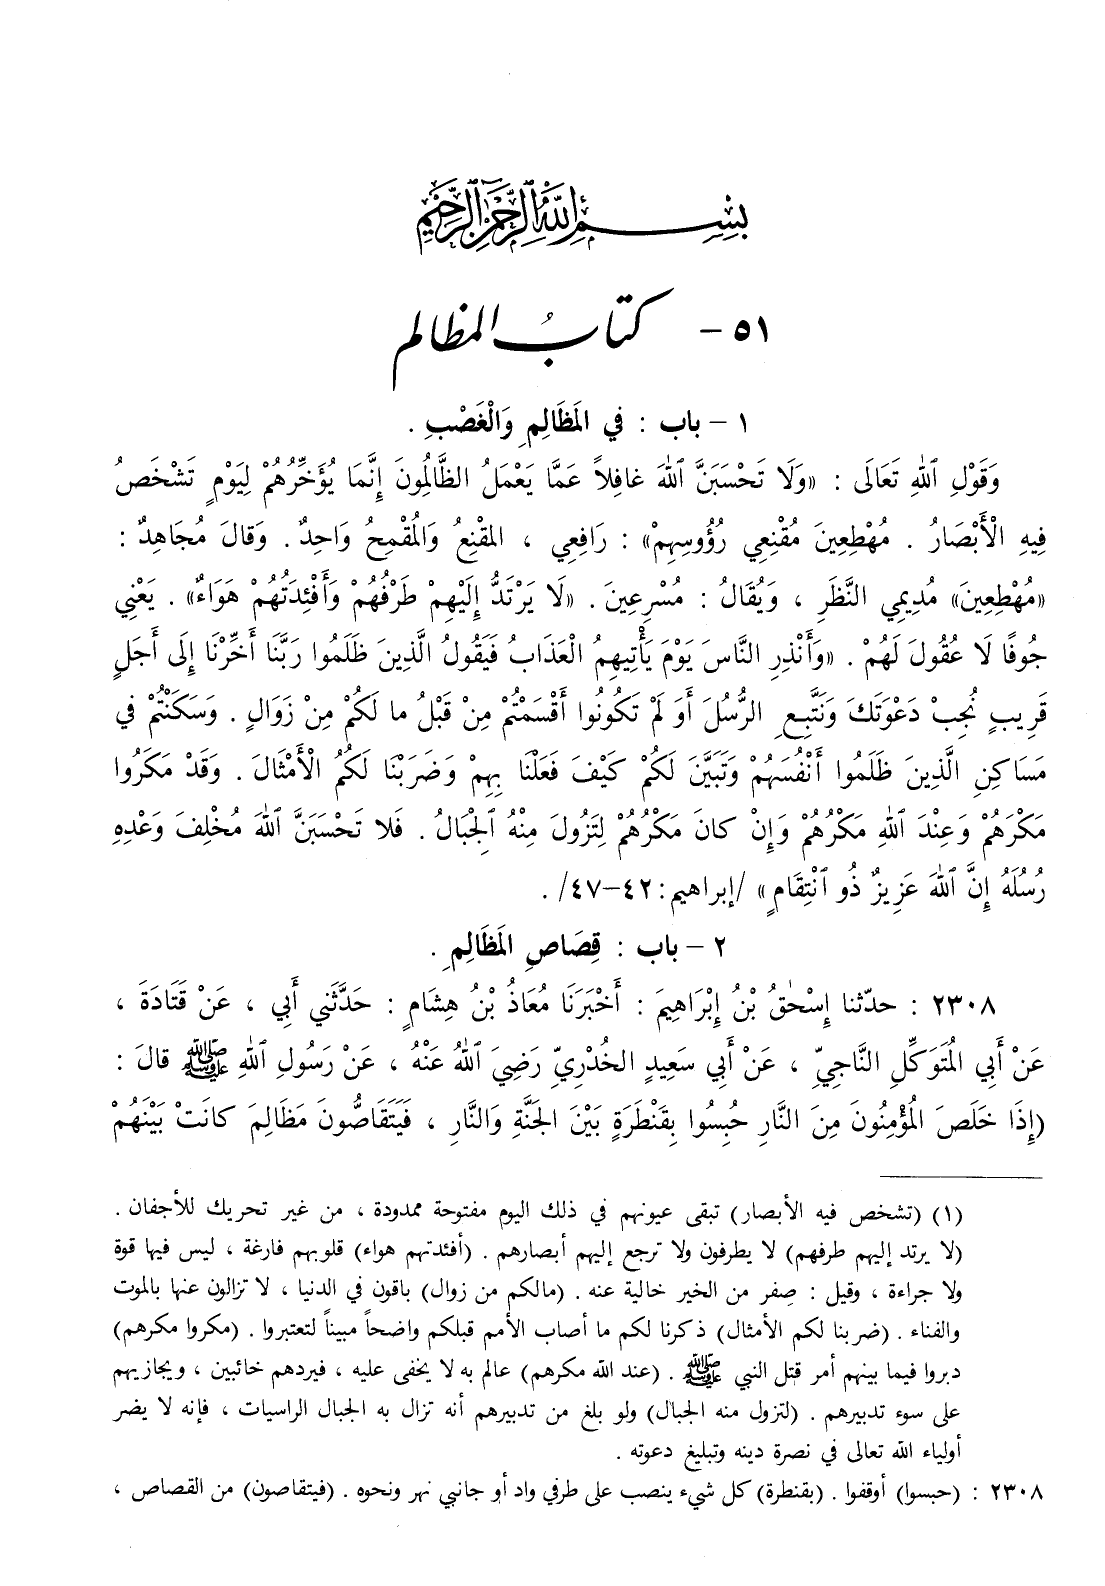 بِسْمِ اللَّهِ الرَّحْمَٰنِ الرَّحِيمِ
٥١ - كتابُ المظالم
١ - باب : في المَظَالِمِ وَالْغَصْبِ .
وَقَوْلِ ٱللهِ تَعَالَى : «وَلَا تَحْسَبَنَّ ٱللهَ غافِلاً عَمَّا يَعْمَلُ الظَّالِمُونَ إِنَّمَا يُؤَخِّرُهُمْ لِيَوْمٍ تَشْخَصُ
فِيهِ الْأَبْصَارُ . مُهْطِعِينَ مُقْنِعِي رُؤُوسِهِمْ» : رَافِعِي ، المقْنِعُ وَالْمُقْمِحُ وَاحِدٌ . وَقالَ مُجَاهِدٌ :
«مُهْطِعِينَ» مُدِيمِي النَّظَرِ ، وَيُقَالُ : مُسْرِعِينَ . «لَا يَرْتَدُّ إِلَيْهِمْ طَرْفُهُمْ وَأَفْئِدَتُهُمْ هَوَاءٌ» . يَعْنِي
جُوفًا لَا عُقُولَ لَهُمْ . «وَأَنْذِرِ النَّاسَ يَوْمَ يَأْتِيهِمُ الْعَذَابُ فَيَقُولُ الَّذِينَ ظَلَمُوا رَبَّنَا أَخِّرْنَا إِلَى أَجَلٍ
قَرِيبٍ نُجِبْ دَعْوَتَكَ وَنَتَّبِعِ الرُّسُلَ أَوَ لَمْ تَكُونُوا أَقْسَمْتُمْ مِنْ قَبْلُ ما لَكُمْ مِنْ زَوَالٍ . وَسَكَنْتُمْ في
مَسَاكِنِ الَّذِينَ ظَلَمُوا أَنْفُسَهُمْ وَتَبَيَّنَ لَكُمْ كَيْفَ فَعَلْنَا بِهِمْ وَضَرَبْنَا لَكُمُ الْأَمْثَالَ . وَقَدْ مَكَرُوا
مَكْرَهُمْ وَعِنْدَ ٱللهِ مَكْرُهُمْ وَإِنْ كانَ مَكْرُهُمْ لِتَزُولَ مِنْهُ ٱلْجِبَالُ . فَلا تَحْسَبَنَّ ٱللهَ مُخْلِفَ وَعْدِهِ
رُسُلَهُ إِنَّ ٱللهَ عَزِيزٌ ذُو ٱنْتِقَامٍ» /إبراهيم: ٤٢-٤٧/ .
٢ - باب : قِصَاصِ المَظَالِمِ .
٢٣٠٨ : حدّثنا إِسْحٰقُ بْنُ إِبْرَاهِيمَ : أَخْبَرَنَا مُعَاذُ بْنُ هِشَامٍ : حَدَّثَنِي أَبِي ، عَنْ قَتَادَةَ ،
عَنْ أَبِي المُتَوَكِّلِ النَّاجِيِّ ، عَنْ أَبِي سَعِيدٍ الخُدْرِيِّ رَضِيَ ٱللهُ عَنْهُ ، عَنْ رَسُولِ ٱللهِ ﷺ قالَ :
(إِذَا خَلَصَ الْمُؤْمِنُونَ مِنَ النَّارِ حُبِسُوا بِقَنْطَرَةٍ بَيْنَ الجَنَّةِ وَالنَّارِ ، فَيَتَقَاصُّونَ مَظَالِمَ كانَتْ بَيْنَهُمْ
(١) (تشخص فيه الأبصار) تبقى عيونهم في ذلك اليوم مفتوحة ممدودة ، من غير تحريك للأجفان .
(لا يرتد إليهم طرفهم) لا يطرفون ولا ترجع إليهم أبصارهم . (أفئدتهم هواء) قلوبهم فارغة ، ليس فيها قوة
ولا جراءة ، وقيل : صِفر من الخير خالية عنه . (مالكم من زوال) باقون في الدنيا ، لا تزالون عنها بالموت
والفناء . (ضربنا لكم الأمثال) ذكرنا لكم ما أصاب الأمم قبلكم واضحاً مبيناً لتعتبروا . (مكروا مكرهم)
دبروا فيما بينهم أمر قتل النبي ﷺ . (عند الله مكرهم) عالم به لا يخفى عليه ، فيردهم خائبين ، ويجازيهم
على سوء تدبيرهم . (لتزول منه الجبال) ولو بلغ من تدبيرهم أنه تزال به الجبال الراسيات ، فإنه لا يضر
أولياء الله تعالى في نصرة دينه وتبليغ دعوته .
٢٣٠٨ : (حبسوا) أوقفوا . (بقنطرة) كل شيء ينصب على طرفي واد أو جانبي نهر ونحوه . (فيتقاصون) من القصاص ،